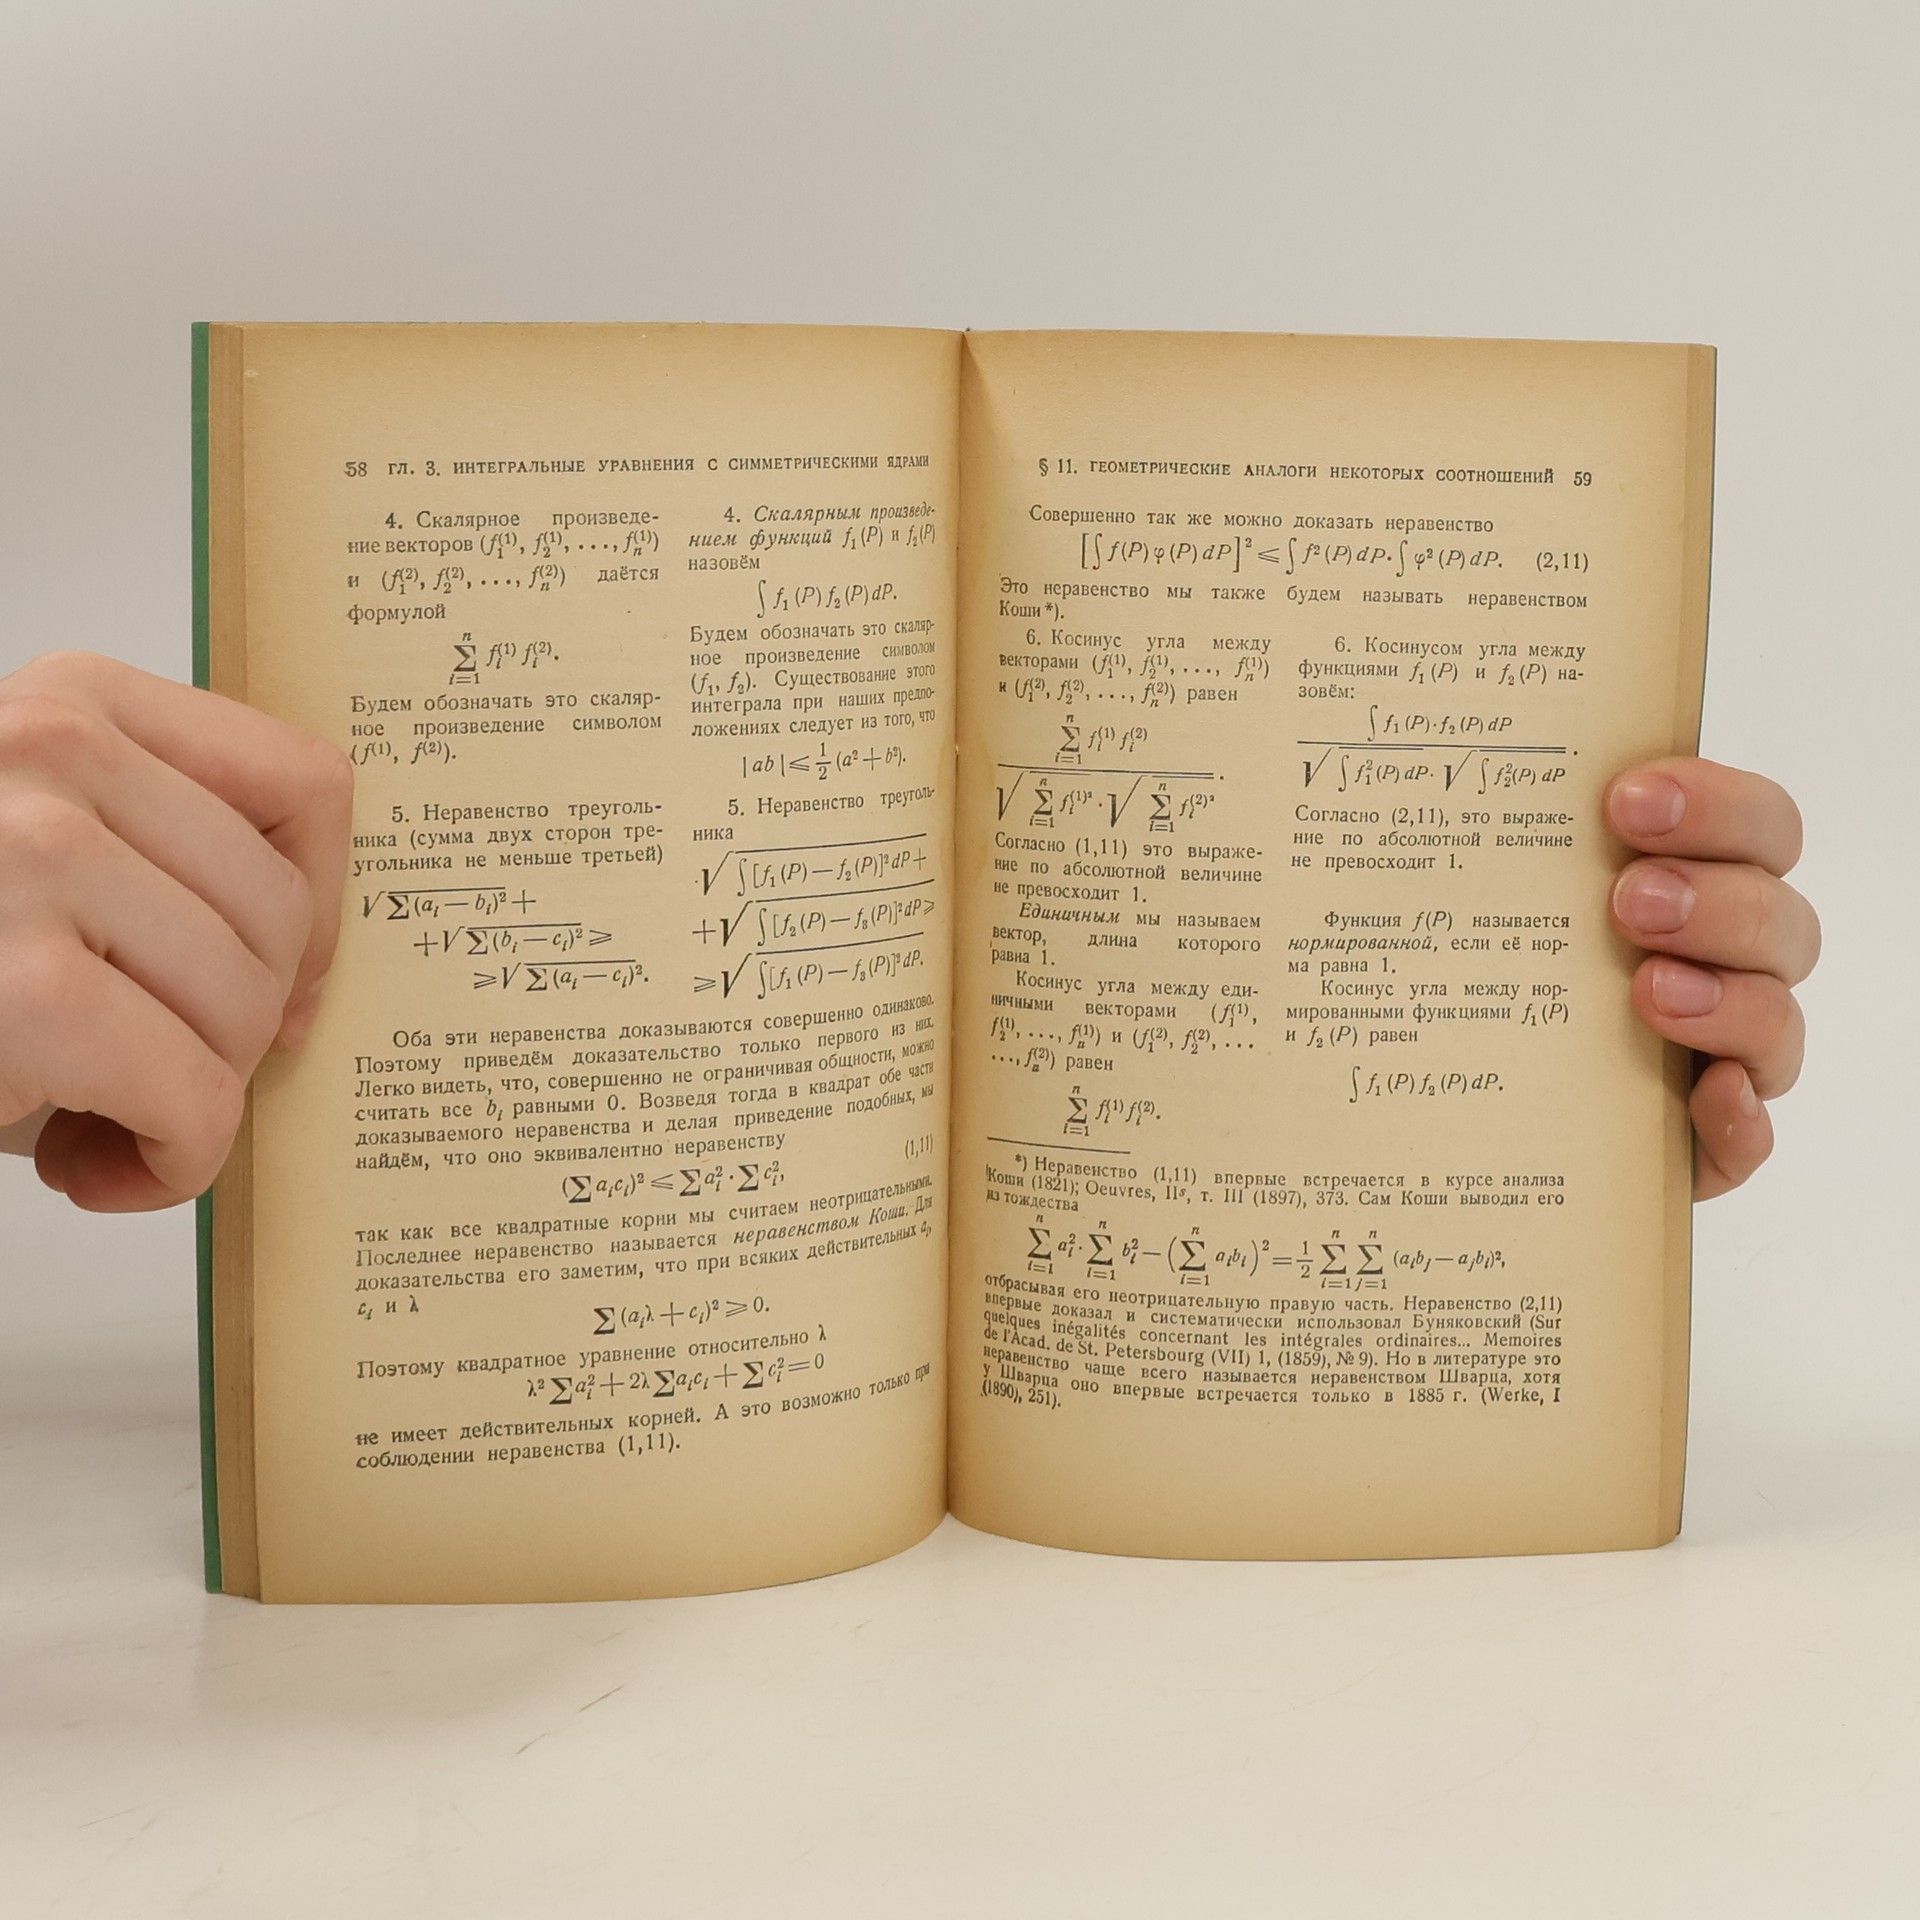 58 ГЛ. 3. ИНТЕГРАЛЬНЫЕ УРАВНЕНИЯ С СИММЕТРИЧЕСКИМИ ЯДРАМИ
4. Скалярное произведе-
ние векторов (f₁⁽¹⁾, f₂⁽¹⁾, ..., fₙ⁽¹⁾)
и (f₁⁽²⁾, f₂⁽²⁾, ..., fₙ⁽²⁾) даётся
формулой
∑ᵢ₌₁ⁿ fᵢ⁽¹⁾ fᵢ⁽²⁾.
Будем обозначать это скаляр-
ное произведение символом
(f⁽¹⁾, f⁽²⁾).
5. Неравенство треуголь-
ника (сумма двух сторон тре-
угольника не меньше третьей)
√∑(aᵢ — bᵢ)² +
+ √∑(bᵢ — cᵢ)² ⩾
⩾ √∑(aᵢ — cᵢ)².
4. Скалярным произведе-
нием функций f₁(P) и f₂(P)
назовём
∫ f₁(P) f₂(P) dP.
Будем обозначать это скаляр-
ное произведение символом
(f₁, f₂). Существование этого
интеграла при наших предпо-
ложениях следует из того, что
|ab| ⩽ 1/2 (a² + b²).
5. Неравенство треуголь-
ника
√∫[f₁(P) — f₂(P)]² dP +
+ √∫[f₂(P) — f₃(P)]² dP ⩾
⩾ √∫[f₁(P) — f₃(P)]² dP.
Оба эти неравенства доказываются совершенно одинаково.
Поэтому приведём доказательство только первого из них.
Легко видеть, что, совершенно не ограничивая общности, можно
считать все bᵢ равными 0. Возведя тогда в квадрат обе части
доказываемого неравенства и делая приведение подобных, мы
найдём, что оно эквивалентно неравенству
(∑aᵢcᵢ)² ⩽ ∑aᵢ² · ∑cᵢ², (1,11)
так как все квадратные корни мы считаем неотрицательными.
Последнее неравенство называется неравенством Коши. Для
доказательства его заметим, что при всяких действительных aᵢ,
cᵢ и λ
∑(aᵢλ + cᵢ)² ⩾ 0.
Поэтому квадратное уравнение относительно λ
λ² ∑aᵢ² + 2λ ∑aᵢcᵢ + ∑cᵢ² = 0
не имеет действительных корней. А это возможно только при
соблюдении неравенства (1,11).
§ 11. ГЕОМЕТРИЧЕСКИЕ АНАЛОГИ НЕКОТОРЫХ СООТНОШЕНИЙ 59
Совершенно так же можно доказать неравенство
[∫ f(P) φ(P) dP]² ⩽ ∫ f²(P) dP · ∫ φ²(P) dP. (2,11)
Это неравенство мы также будем называть неравенством
Коши *).
6. Косинус угла между
векторами (f₁⁽¹⁾, f₂⁽¹⁾, ..., fₙ⁽¹⁾)
и (f₁⁽²⁾, f₂⁽²⁾, ..., fₙ⁽²⁾) равен
∑ᵢ₌₁ⁿ fᵢ⁽¹⁾ fᵢ⁽²⁾
√∑ᵢ₌₁ⁿ fᵢ⁽¹⁾² · √∑ᵢ₌₁ⁿ fᵢ⁽²⁾² .
Согласно (1,11) это выраже-
ние по абсолютной величине
не превосходит 1.
Единичным мы называем
вектор, длина которого
равна 1.
Косинус угла между еди-
ничными векторами (f₁⁽¹⁾,
f₂⁽¹⁾, ..., fₙ⁽¹⁾) и (f₁⁽²⁾, f₂⁽²⁾, ...
..., fₙ⁽²⁾) равен
∑ᵢ₌₁ⁿ fᵢ⁽¹⁾ fᵢ⁽²⁾.
6. Косинусом угла между
функциями f₁(P) и f₂(P) на-
зовём:
∫ f₁(P) · f₂(P) dP
√∫ f₁²(P) dP · √∫ f₂²(P) dP .
Согласно (2,11), это выраже-
ние по абсолютной величине
не превосходит 1.
Функция f(P) называется
нормированной, если её нор-
ма равна 1.
Косинус угла между нор-
мированными функциями f₁(P)
и f₂(P) равен
∫ f₁(P) f₂(P) dP.
*) Неравенство (1,11) впервые встречается в курсе анализа
Коши (1821); Oeuvres, IIˢ, т. III (1897), 373. Сам Коши выводил его
из тождества
∑ᵢ₌₁ⁿ aᵢ² · ∑ᵢ₌₁ⁿ bᵢ² — (∑ᵢ₌₁ⁿ aᵢbᵢ)² = 1/2 ∑ᵢ₌₁ⁿ ∑ⱼ₌₁ⁿ (aᵢbⱼ — aⱼbᵢ)²,
отбрасывая его неотрицательную правую часть. Неравенство (2,11)
впервые доказал и систематически использовал Буняковский (Sur
quelques inégalités concernant les intégrales ordinaires... Memoires
de l'Acad. de St. Petersbourg (VII) 1, (1859), № 9). Но в литературе это
неравенство чаще всего называется неравенством Шварца, хотя
у Шварца оно впервые встречается только в 1885 г. (Werke, I
(1890), 251).